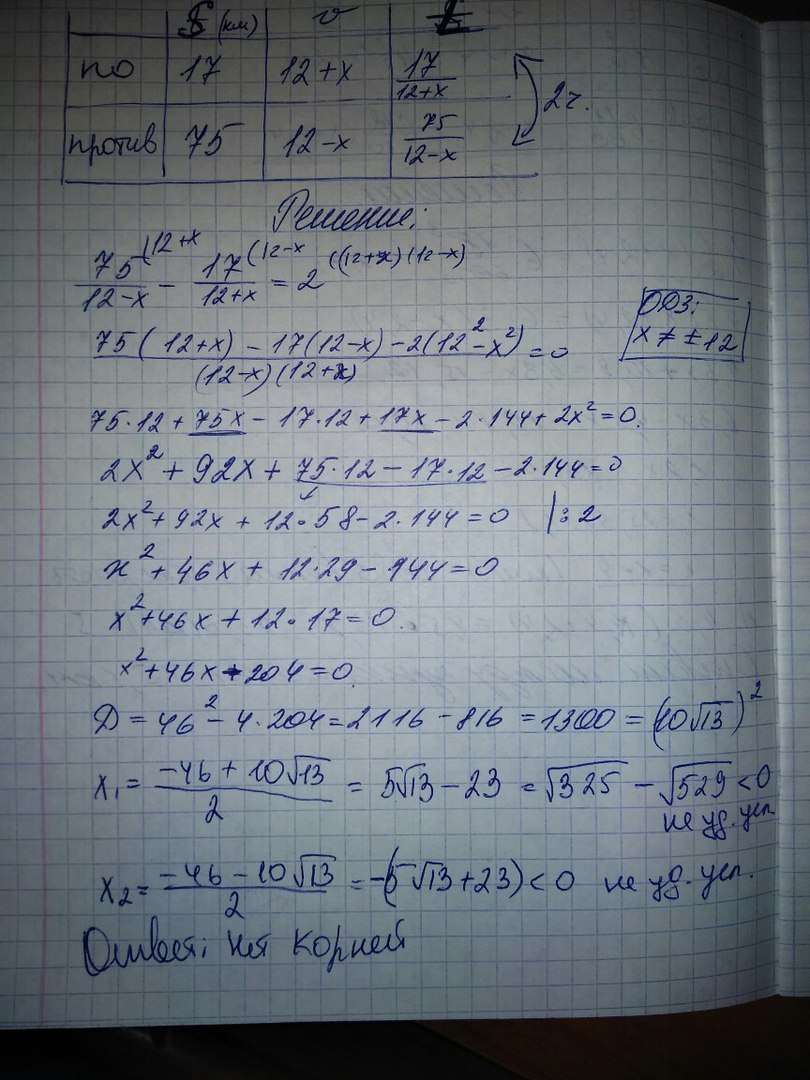 S (км) v t
по 17 12+x 17/(12+x)
2ч.
против 75 12-x 75/(12-x)
Решение:
75/(12-x) (12+x - 17/(12+x) (12-x = 2 ((12+x)(12-x)
ОДЗ:
x ≠ ±12
(75(12+x) - 17(12-x) - 2(12²-x²))/((12-x)(12+x)) = 0
75·12 + 75x - 17·12 + 17x - 2·144 + 2x² = 0.
2x² + 92x + 75·12 - 17·12 - 2·144 = 0
2x² + 92x + 12·58 - 2·144 = 0 |:2
x² + 46x + 12·29 - 144 = 0
x² + 46x + 12·17 = 0.
x² + 46x + 204 = 0.
D = 46² - 4·204 = 2116 - 816 = 1300 = (10√13)²
x₁ = (-46 + 10√13)/2 = 5√13 - 23 = √325 - √529 < 0
не уд. усл.
x₂ = (-46 - 10√13)/2 = -(5√13 + 23) < 0 не уд. усл.
Ответ: нет корней